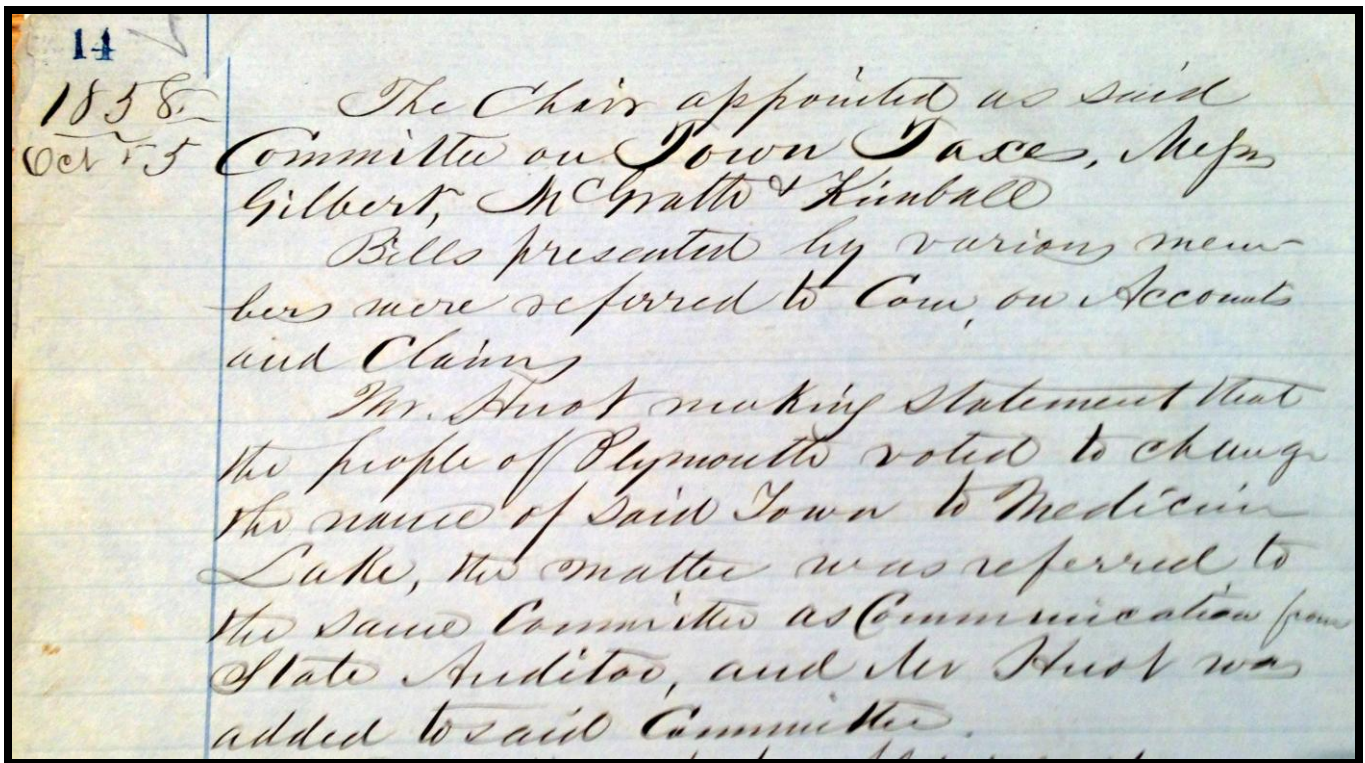 14
1858
Oct r 5
The Chair appointed as said
Committee on Town Taxes, Messrs
Gilbert, McGrath & Kimball
Bills presented by various mem-
bers were referred to Com, on Accounts
and Claims
Mr. Huot making statement that
the people of Plymouth voted to change
the name of said Town to Medicine
Lake, the matter was referred to
the same Committee as Communication from
State Auditor, and Mr Huot was
added to said Committee.